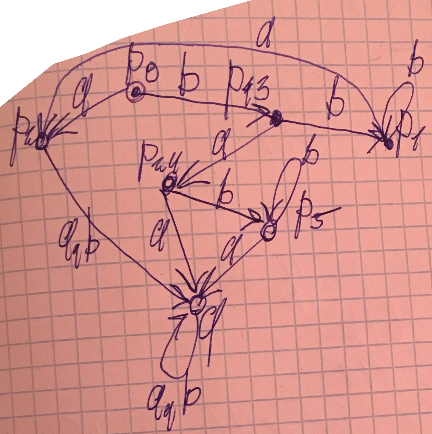 a
b
a
p0
b
p13
b
p4
p1
a
p24
b
b
p5
a,b
a
a
q
a,b